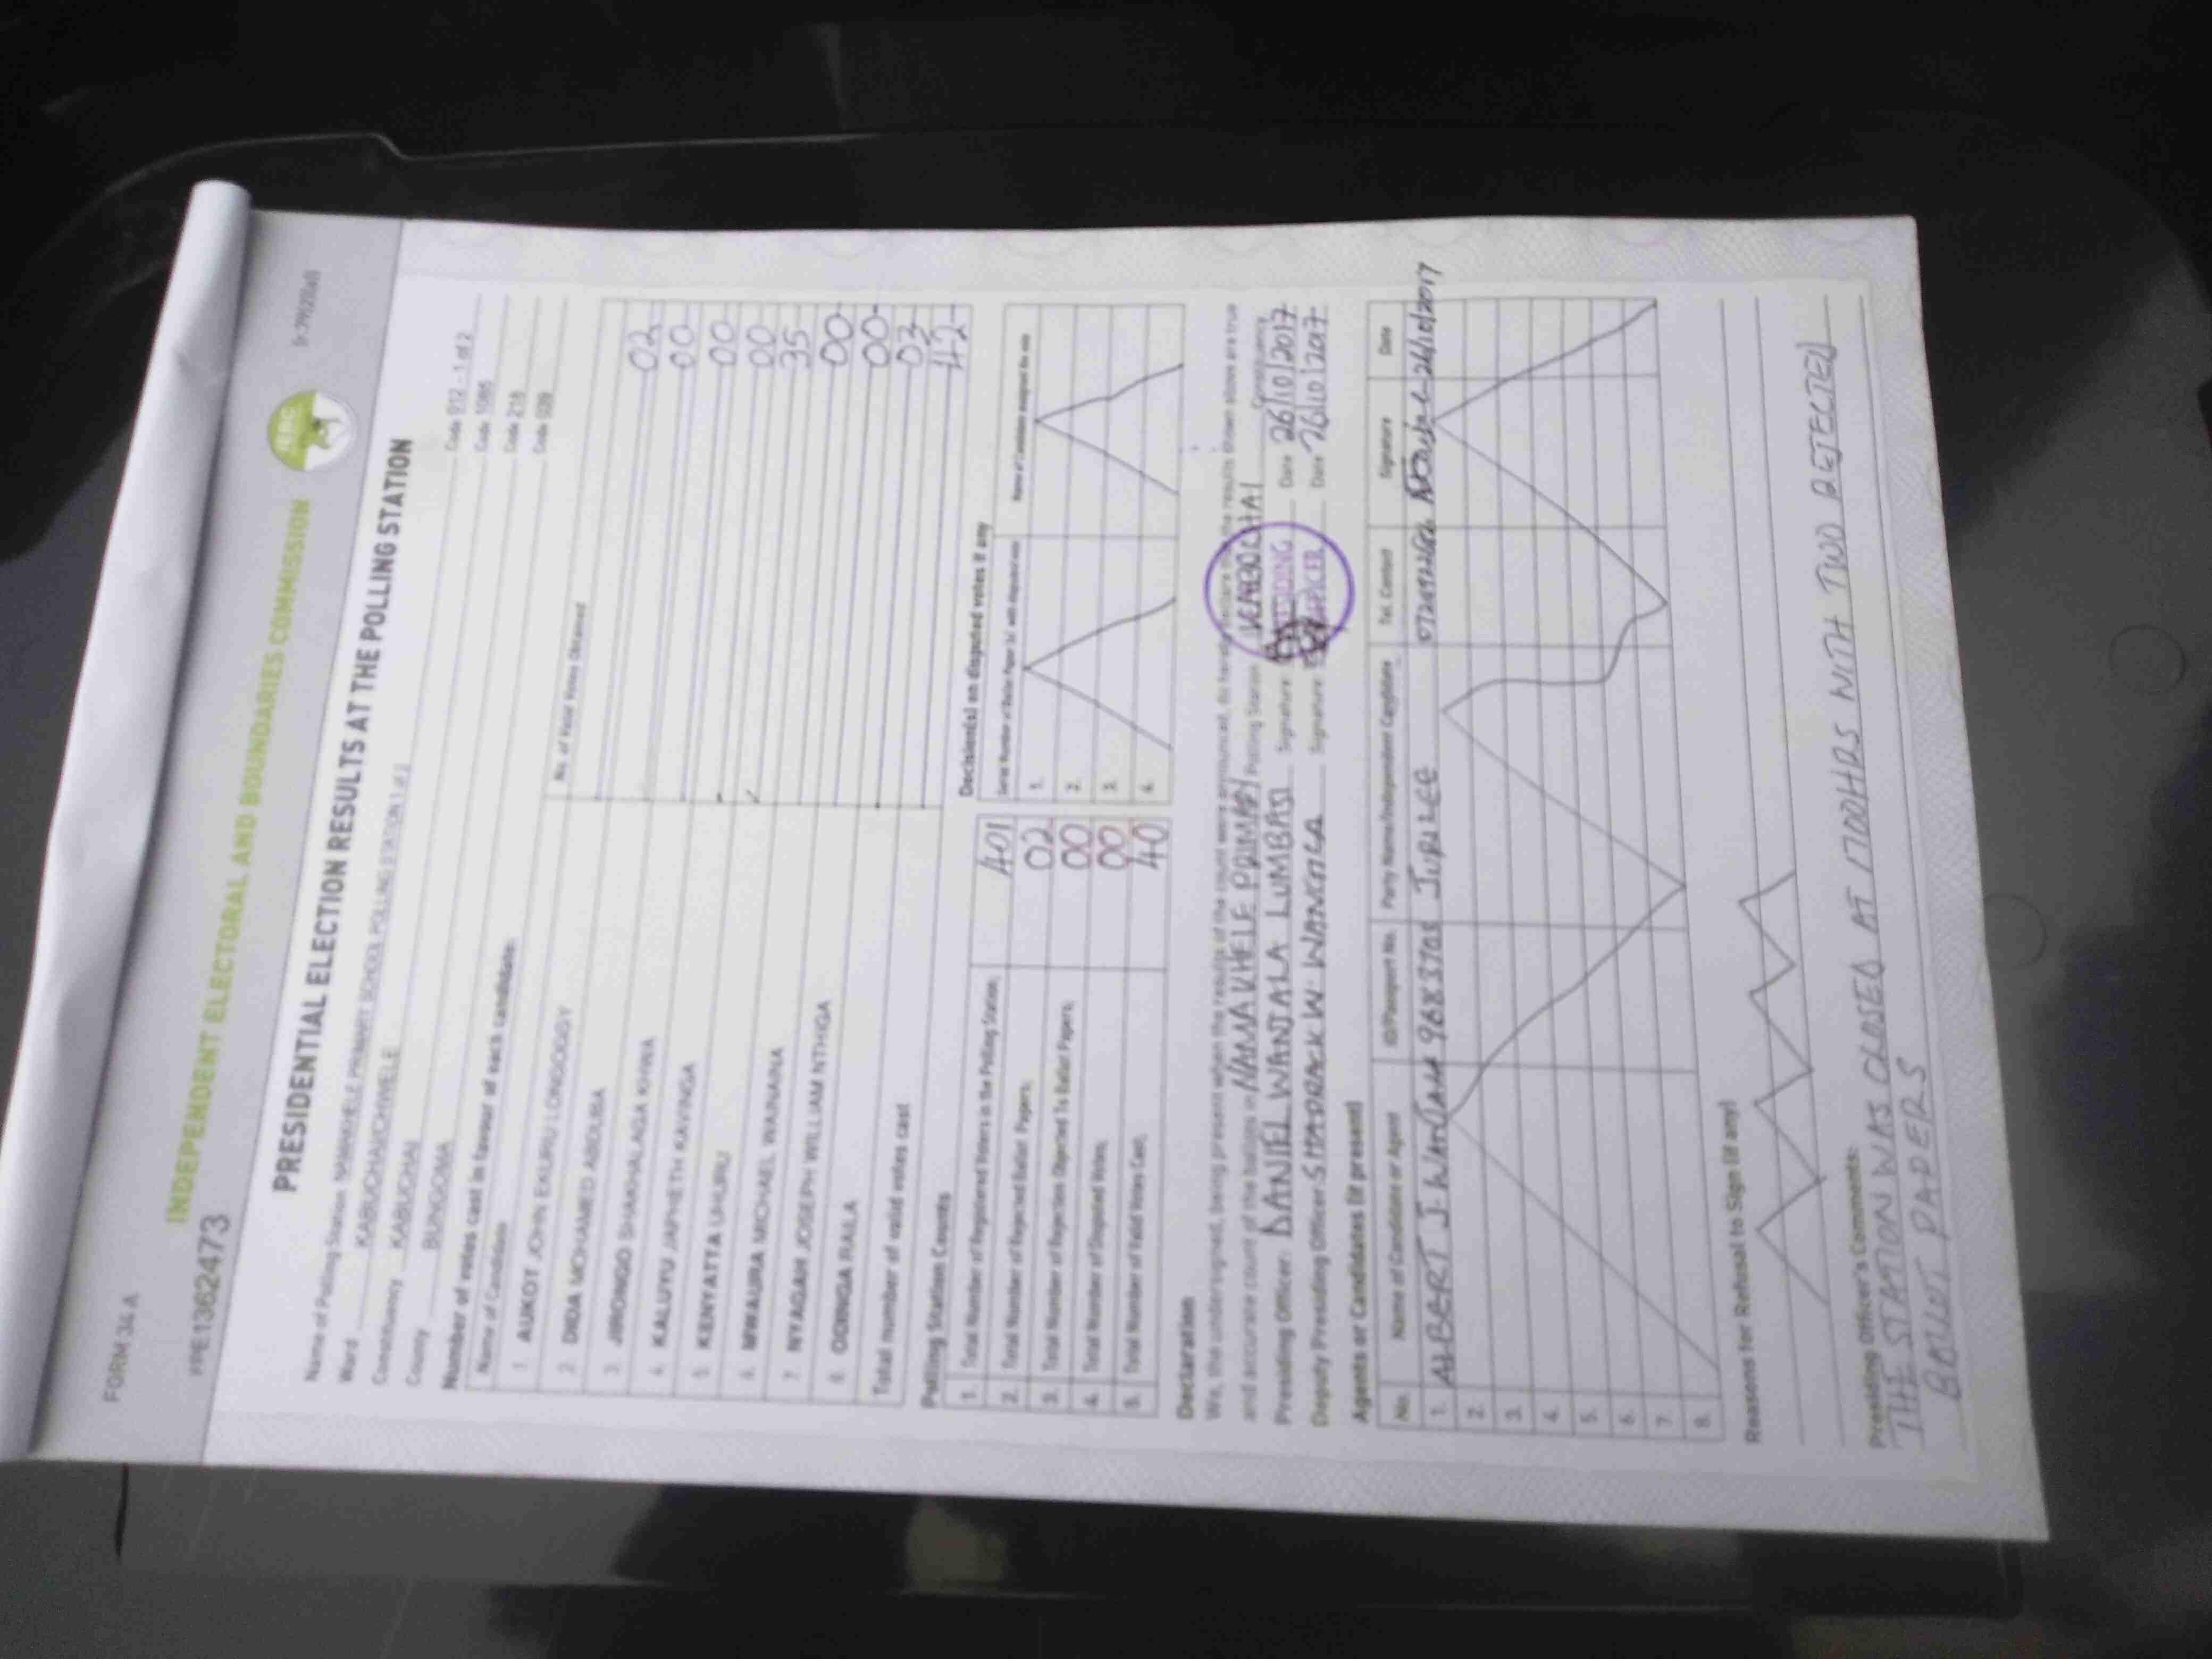 FORM 34 A
PPE13624473
INDEPENDENT ELECTORAL AND BOUNDARIES COMMISSION
IEBC
PRESIDENTIAL ELECTION RESULTS AT THE POLLING STATION
Name of Polling Station NAMAKHELE PRIMARY SCHOOL POLLING STATION 1 of 2 Code 012 - 1 of 2
Ward KABUCHAI/CHWELE Code 1085
Constituency KABUCHAI Code 218
County BUNGOMA Code 039
Number of votes cast in favour of each candidate:
Name of Candidate No. of Valid Votes Obtained
1. AUKOT JOHN EKURU LONGOGGY 02
2. DIDA MOHAMED ABDUBA 00
3. JIRONGO SHAKHALAGA KHWA 00
4. KALUYU JAPHETH KAVINGA 00
5. KENYATTA UHURU 35
6. MWAURA MICHAEL WAINAINA 00
7. NYAGAH JOSEPH WILLIAM NTHIGA 00
8. ODINGA RAILA 03
Total number of valid votes cast 42
Polling Station Counts
1. Total Number of Registered Voters in the Polling Station 401
2. Total Number of Rejected Ballot Papers 02
3. Total Number of Rejection Objected To Ballot Papers 00
4. Total Number of Disputed Votes 00
5. Total Number of Valid Votes Cast 40
Decision(s) on disputed votes if any
Serial Number of Ballot Paper (s) with disputed vote Name of Candidate assigned the vote
1.
2.
3.
4.
Declaration
We, the undersigned, being present when the results of the count were announced, do hereby declare that the results shown above are true
and accurate count of the ballots in NAMAKHELE PRIMARY Polling Station KABUCHAI Constituency
Presiding Officer: DANIEL WANJALA LUMBASI Signature Date 26/10/2017
Deputy Presiding Officer: SHADRACK W. WANGILA Signature Date 26/10/2017
PRESIDING
OFFICER
Agents or Candidates (if present)
No. Name of Candidate or Agent ID/Passport No. Party Name/Independent Candidate Tel. Contact Signature Date
1. ALBERT J. WANJALA 96883705 JUBILEE 26/10/2017
2.
3.
4.
5.
6.
7.
8.
Reasons for Refusal to Sign (if any)
Presiding Officer's Comments:
THE STATION WAS CLOSED AT 1700HRS WITH TWO REJECTED
BALLOT PAPERS